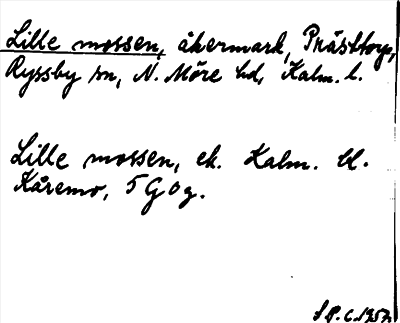 Lille mossen, åkermark, Prästtorp,
Ryssby sn, N. Möre hd, Kalm. l.
Lille mossen, ek. Kalm. bl.
Kåremo, 5 G 0 g.
S P. C. 1957.